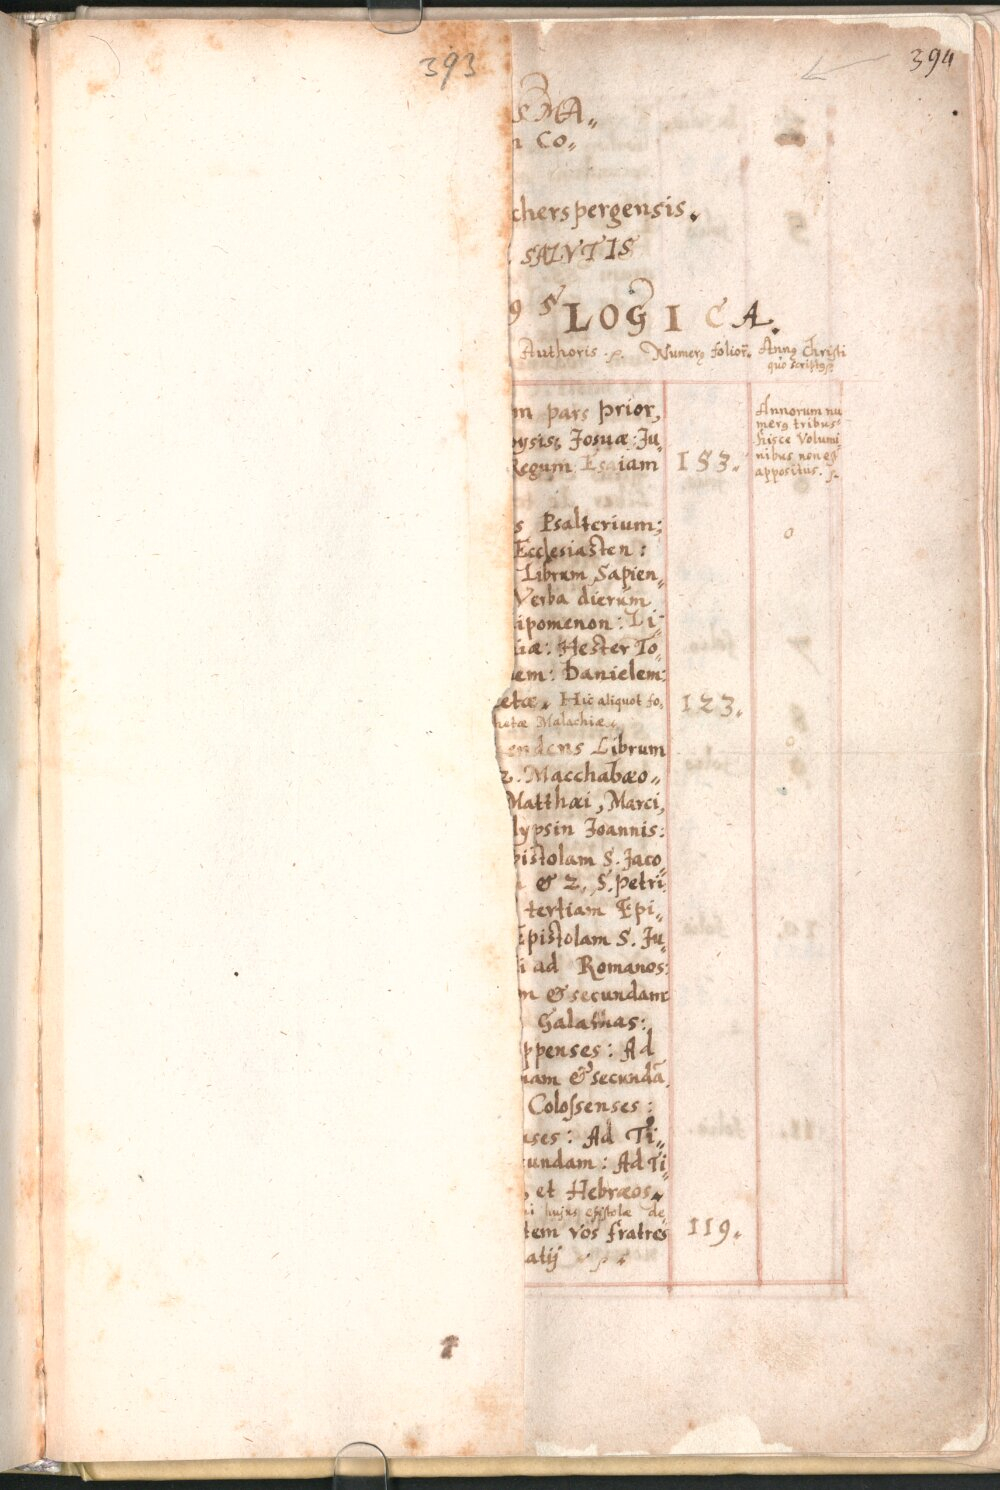 393
394
SMA„
n CO„
cherspergensis.
SALVTIS
9 S LOGICA.
Authoris. Numerꝯ folior. Annꝯ Christi
quo scriptꝯ
m pars prior,
oysis; Josuæ: Ju„
Regum: Esaiam 153.
Annorum nu
merꝯ tribus
hisce Volumi„
nibus non est
appositus.
s Psalterium;
Ecclesiasten:
Librum Sapien„
Verba dierum
ipomenon: Li„
iæ: Hester To„
em: Danielem:
etæ. Hic aliquot fo„ 123.
hetæ Malachiæ.
endens Librum
2. Macchabæo„
Matthæi, Marci,
lypsin Joannis:
pistolam S. Jaco„
& 2. S. Petri:
tertiam Epi„
Epistolam S. Ju„
i ad Romanos:
m & secundam
Galathas:
ppenses: Ad
mam & secundā
Colossenses:
nses: Ad Ti„
cundam: Ad Ti„
, et Hebræos.
ni hujus epistolæ de
tem vos fratres 119.
atij
1